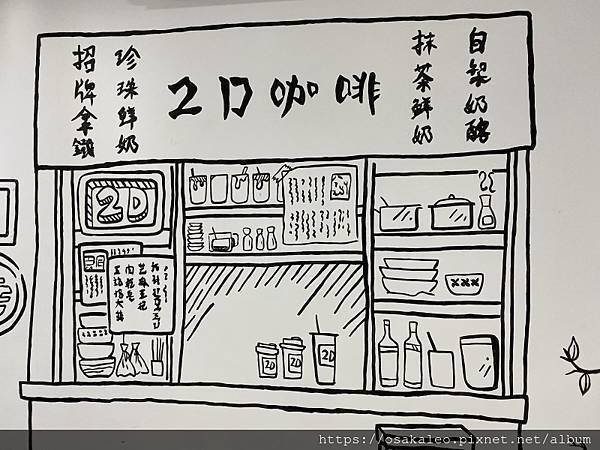 招牌拿鐵
珍珠鮮奶
2D咖啡
抹茶鮮奶
自製奶酪
2D
2D
2D
2D
https://osakaleo.pixnet.net/album